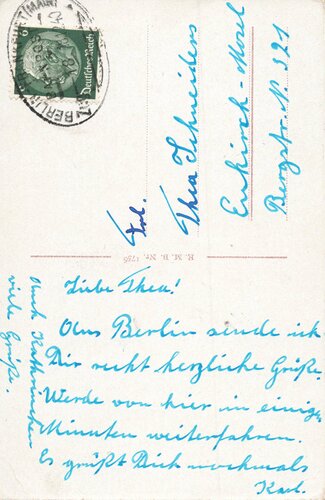 6
Deutsches Reich
BERLIN
Frl.
Thea Schneiders
Enkirch-Mosel
Bergstr. N. 321
E. M. B. No. 1756
Liebe Thea!
Aus Berlin sende ich
Dir recht herzliche Grüße.
Werde von hier in einig.
Minuten weiterfahren.
Es grüßt Dich nochmals
Karl.
Auch
viele Grüße.